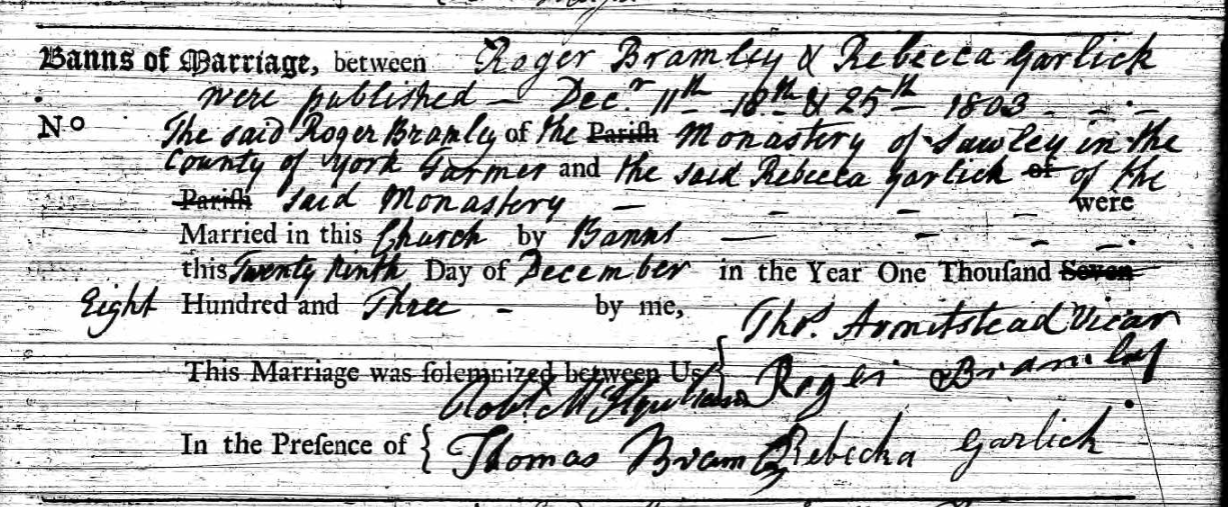 Banns of Marriage, between Roger Bramley & Rebecca Garlick
were published – Decr. 11th 18th & 25th 1803
No The said Roger Bramley of the Pariſh Monastery of Sawley in the
County of York Farmer and the said Rebecca Garlick of of the
Pariſh said Monastery – – – – were
Married in this Church by Banns – – – –
this Twenty Ninth Day of December in the Year One Thouſand Seven
Eight Hundred and Three – by me,
Thos. Armitstead Vicar
This Marriage was ſolemnized between Us { Roger Bramley
Robt.
In the Preſence of { Thomas Bramley Rebecka Garlick